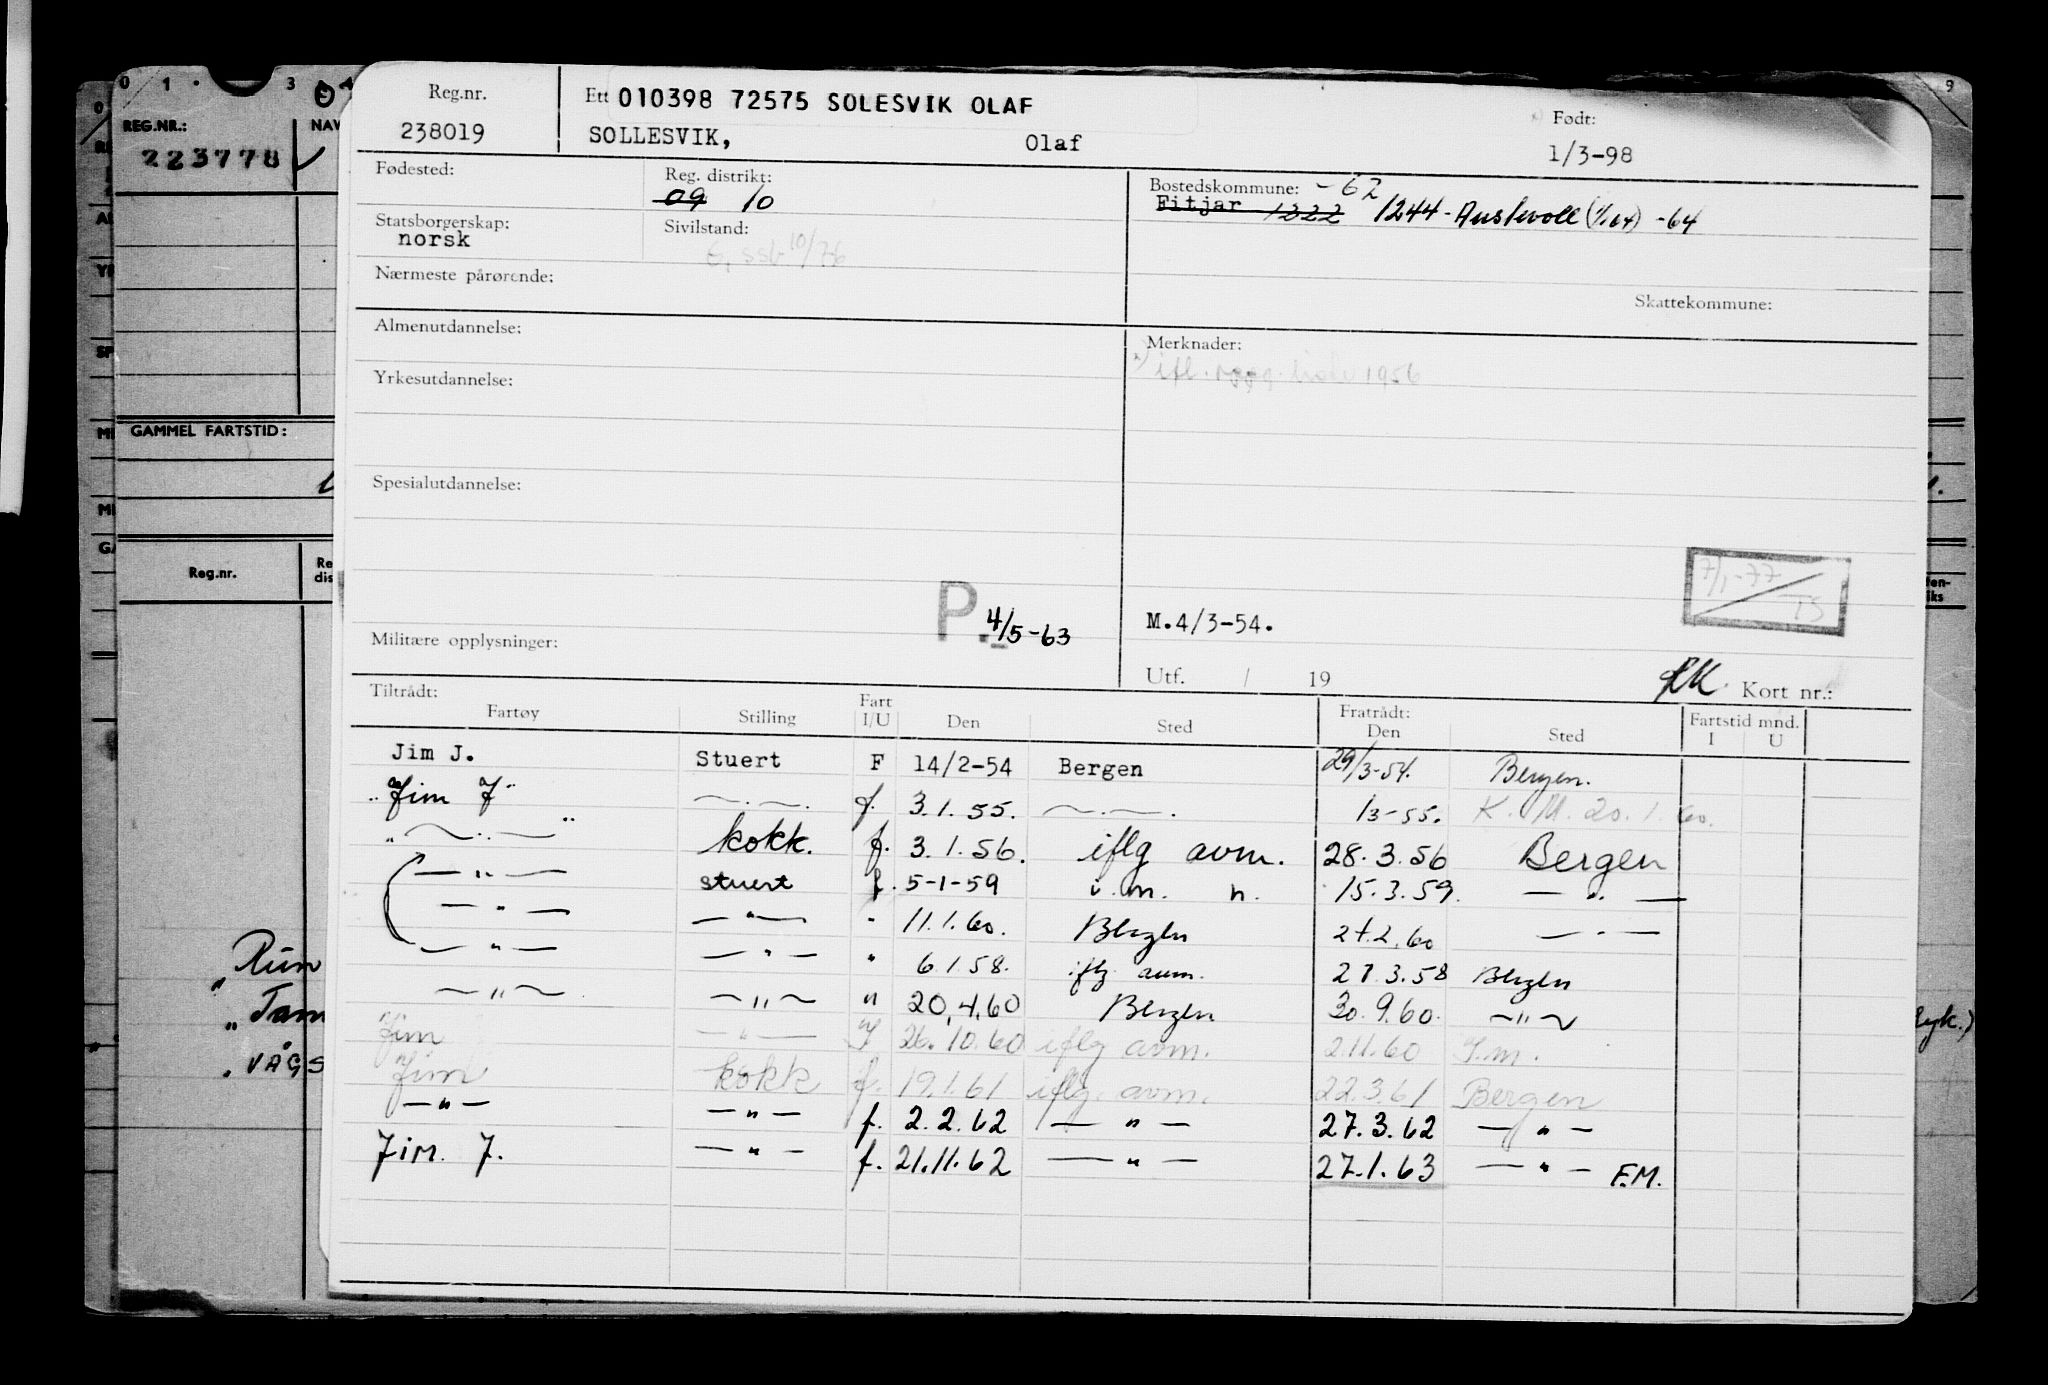 0 1 . 3 4 9
REG.NR.: NAV
223778
GAMMEL FARTSTID:
Reg.nr. Re dis
"Run
"Tam
"VÅGS
Ryk.)
Reg.nr. Ett 010398 72575 SOLESVIK OLAF Født:
238019 SOLLESVIK, Olaf 1/3-98
Fødested: Reg. distrikt: Bostedskommune: -62
09 10 Fitjar 1222 1244 - Austevoll (1/1.64) -64
Statsborgerskap: Sivilstand:
norsk G, ssb 10/76
Nærmeste pårørende: Skattekommune:
Almenutdannelse: Merknader:
Yrkesutdannelse: x) ifl. 1956
Spesialutdannelse:
7/1-77 TS
P. 4/5-63 M.4/3-54.
Militære opplysninger: Utf. / 19 Kort nr.:
Tiltrådt: Fratrådt: Fartstid mnd.
Fartøy Stilling Fart I/U Den Sted Den Sted I U
Jim J. Stuert F 14/2-54 Bergen 29/3-54. Bergen.
"Jim J" —.—. f. 3.1.55. —.—. 1/3-55. K. M. 20.1.60.
" —..— " kokk. f. 3.1.56. iflg avm. 28.3.56 Bergen
— " — stuert f. 5-1-59 i. m. n. 15.3.59. — " —
— " — — " — " 11.1.60. Bergen 27.2.60 — " —
— " — — " — " 6.1.58. iflg. avm. 27.3.58 Bergen
— " — — " — " 20.4.60 Bergen 30.9.60. — " —
"Jim — " — f 26.10.60 iflg avm. 2.11.60 I.m.
Jim kokk f. 19.1.61 iflg. avm. 22.3.61 Bergen
— " — — " — f. 2.2.62 — " — 27.3.62 — " —
Jim. J. — " — f. 21.11.62 — " — 27.1.63 — " — F.M.